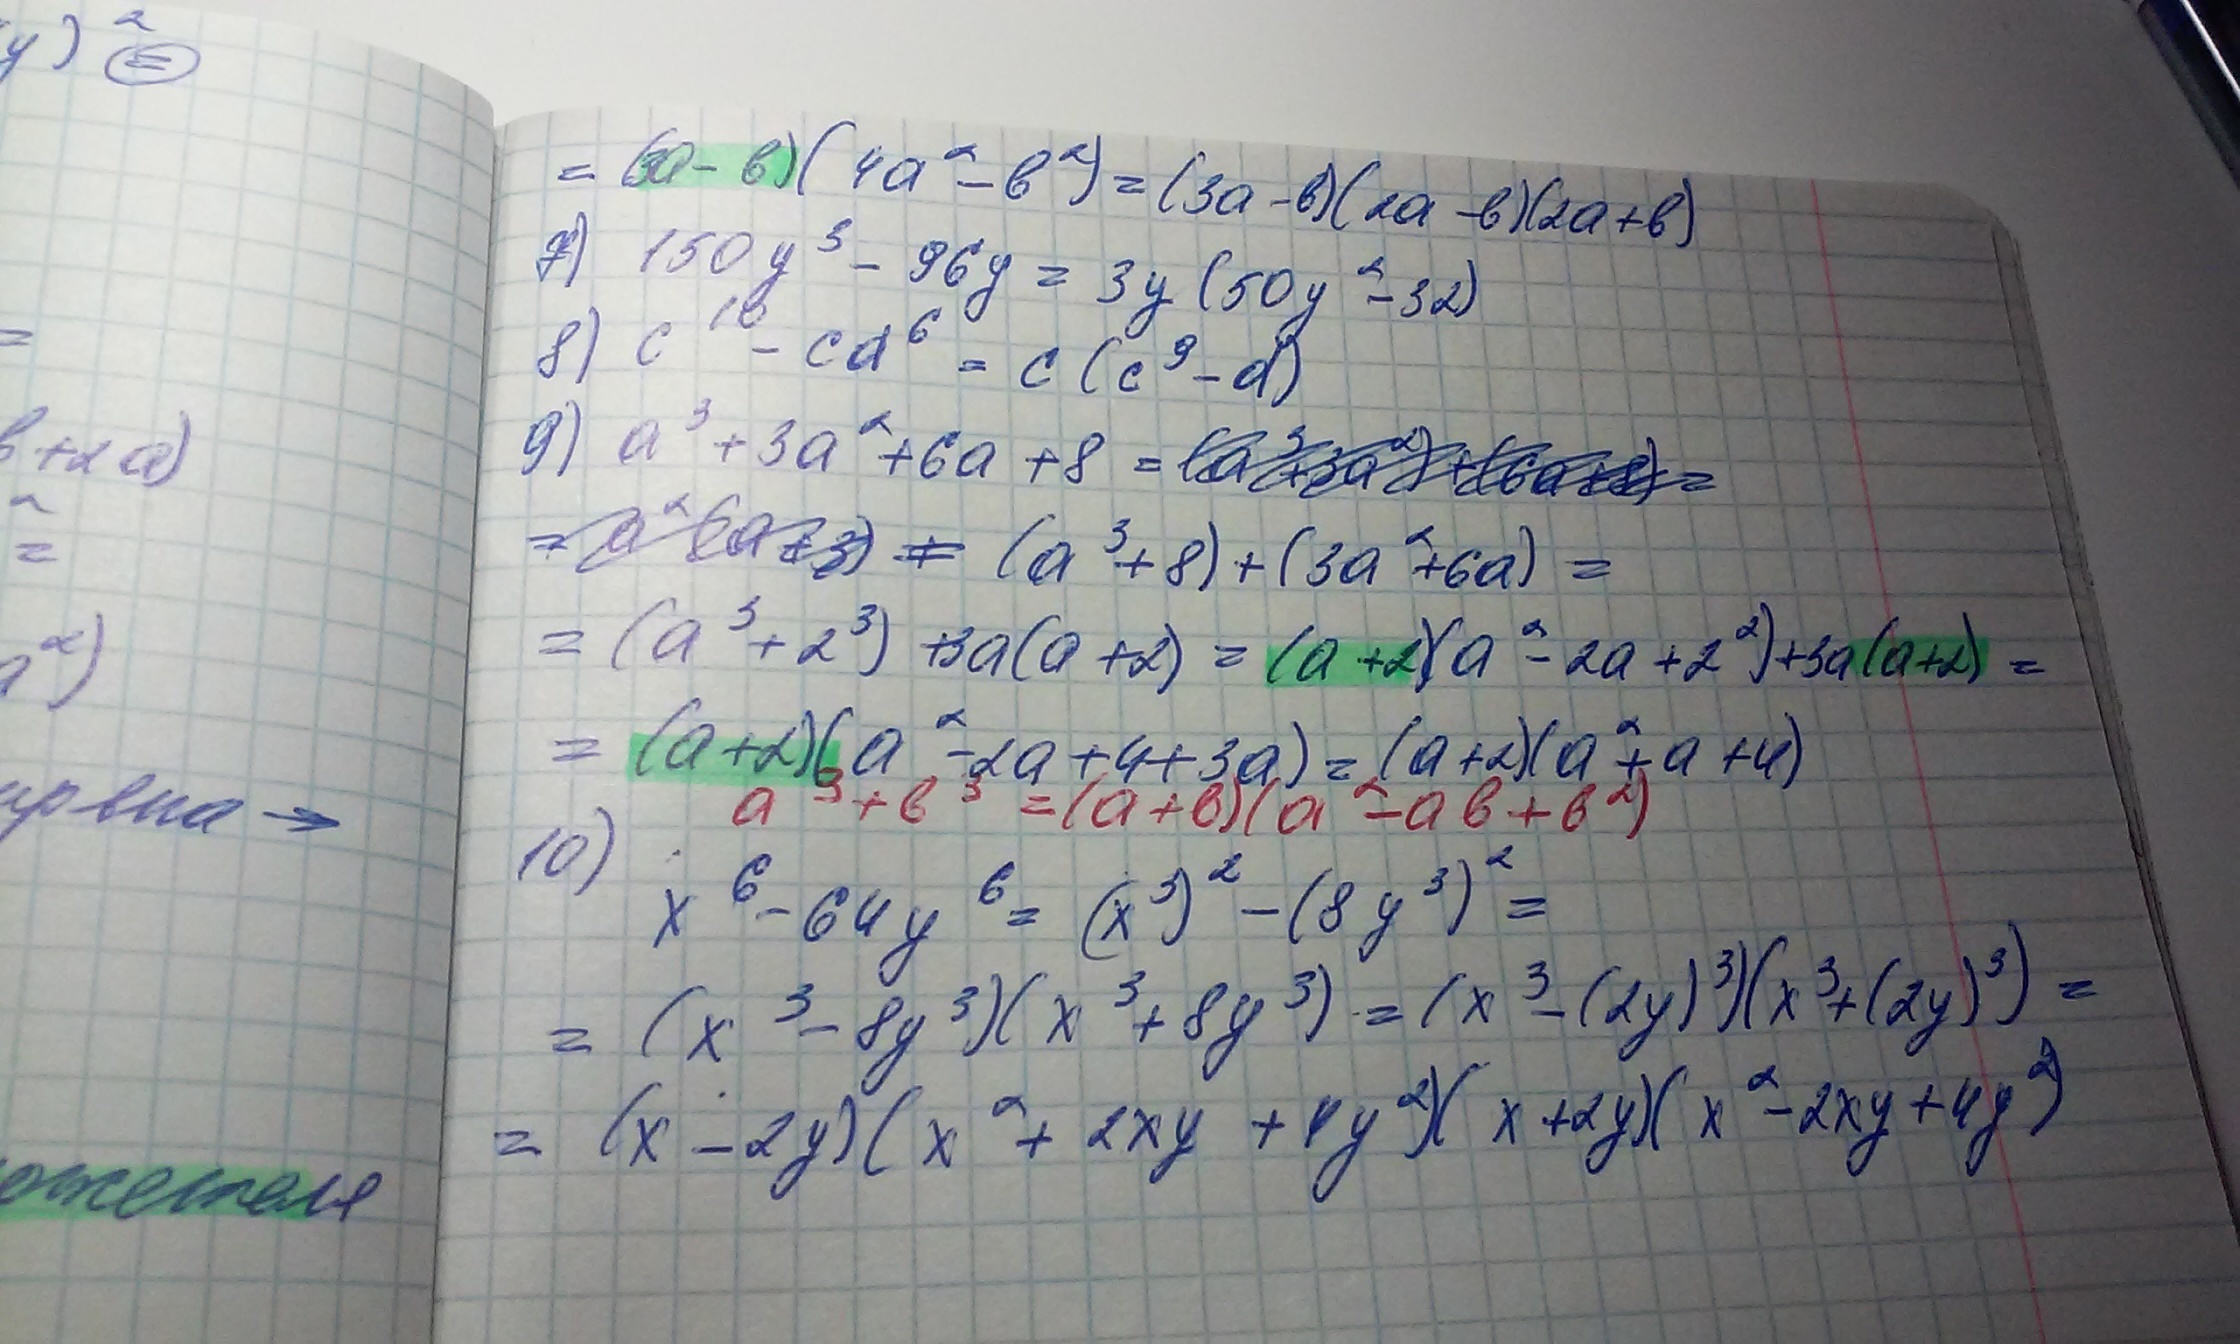 y)² =
=
в+2a)
²
=
a²)
= (3a-в)(4a²-в²)=(3a-в)(2a-в)(2a+в)
7) 150y³-96y=3y(50y²-32)
8) c¹⁰-cd⁶=c(c⁹-d)
9) a³+3a²+6a+8=(a³+3a²)+(6a+8)=
=a²(a+3)=(a³+8)+(3a²+6a)=
=(a³+2³)+3a(a+2)=(a+2)(a²-2a+2²)+3a(a+2)=
=(a+2)(a²-2a+4+3a)=(a+2)(a²+a+4)
a³+в³=(a+в)(a²-aв+в²)
10) x⁶-64y⁶=(x³)²-(8y³)²=
=(x³-8y³)(x³+8y³)=(x³-(2y)³)(x³+(2y)³)=
=(x-2y)(x²+2xy+4y²)(x+2y)(x²-2xy+4y²)